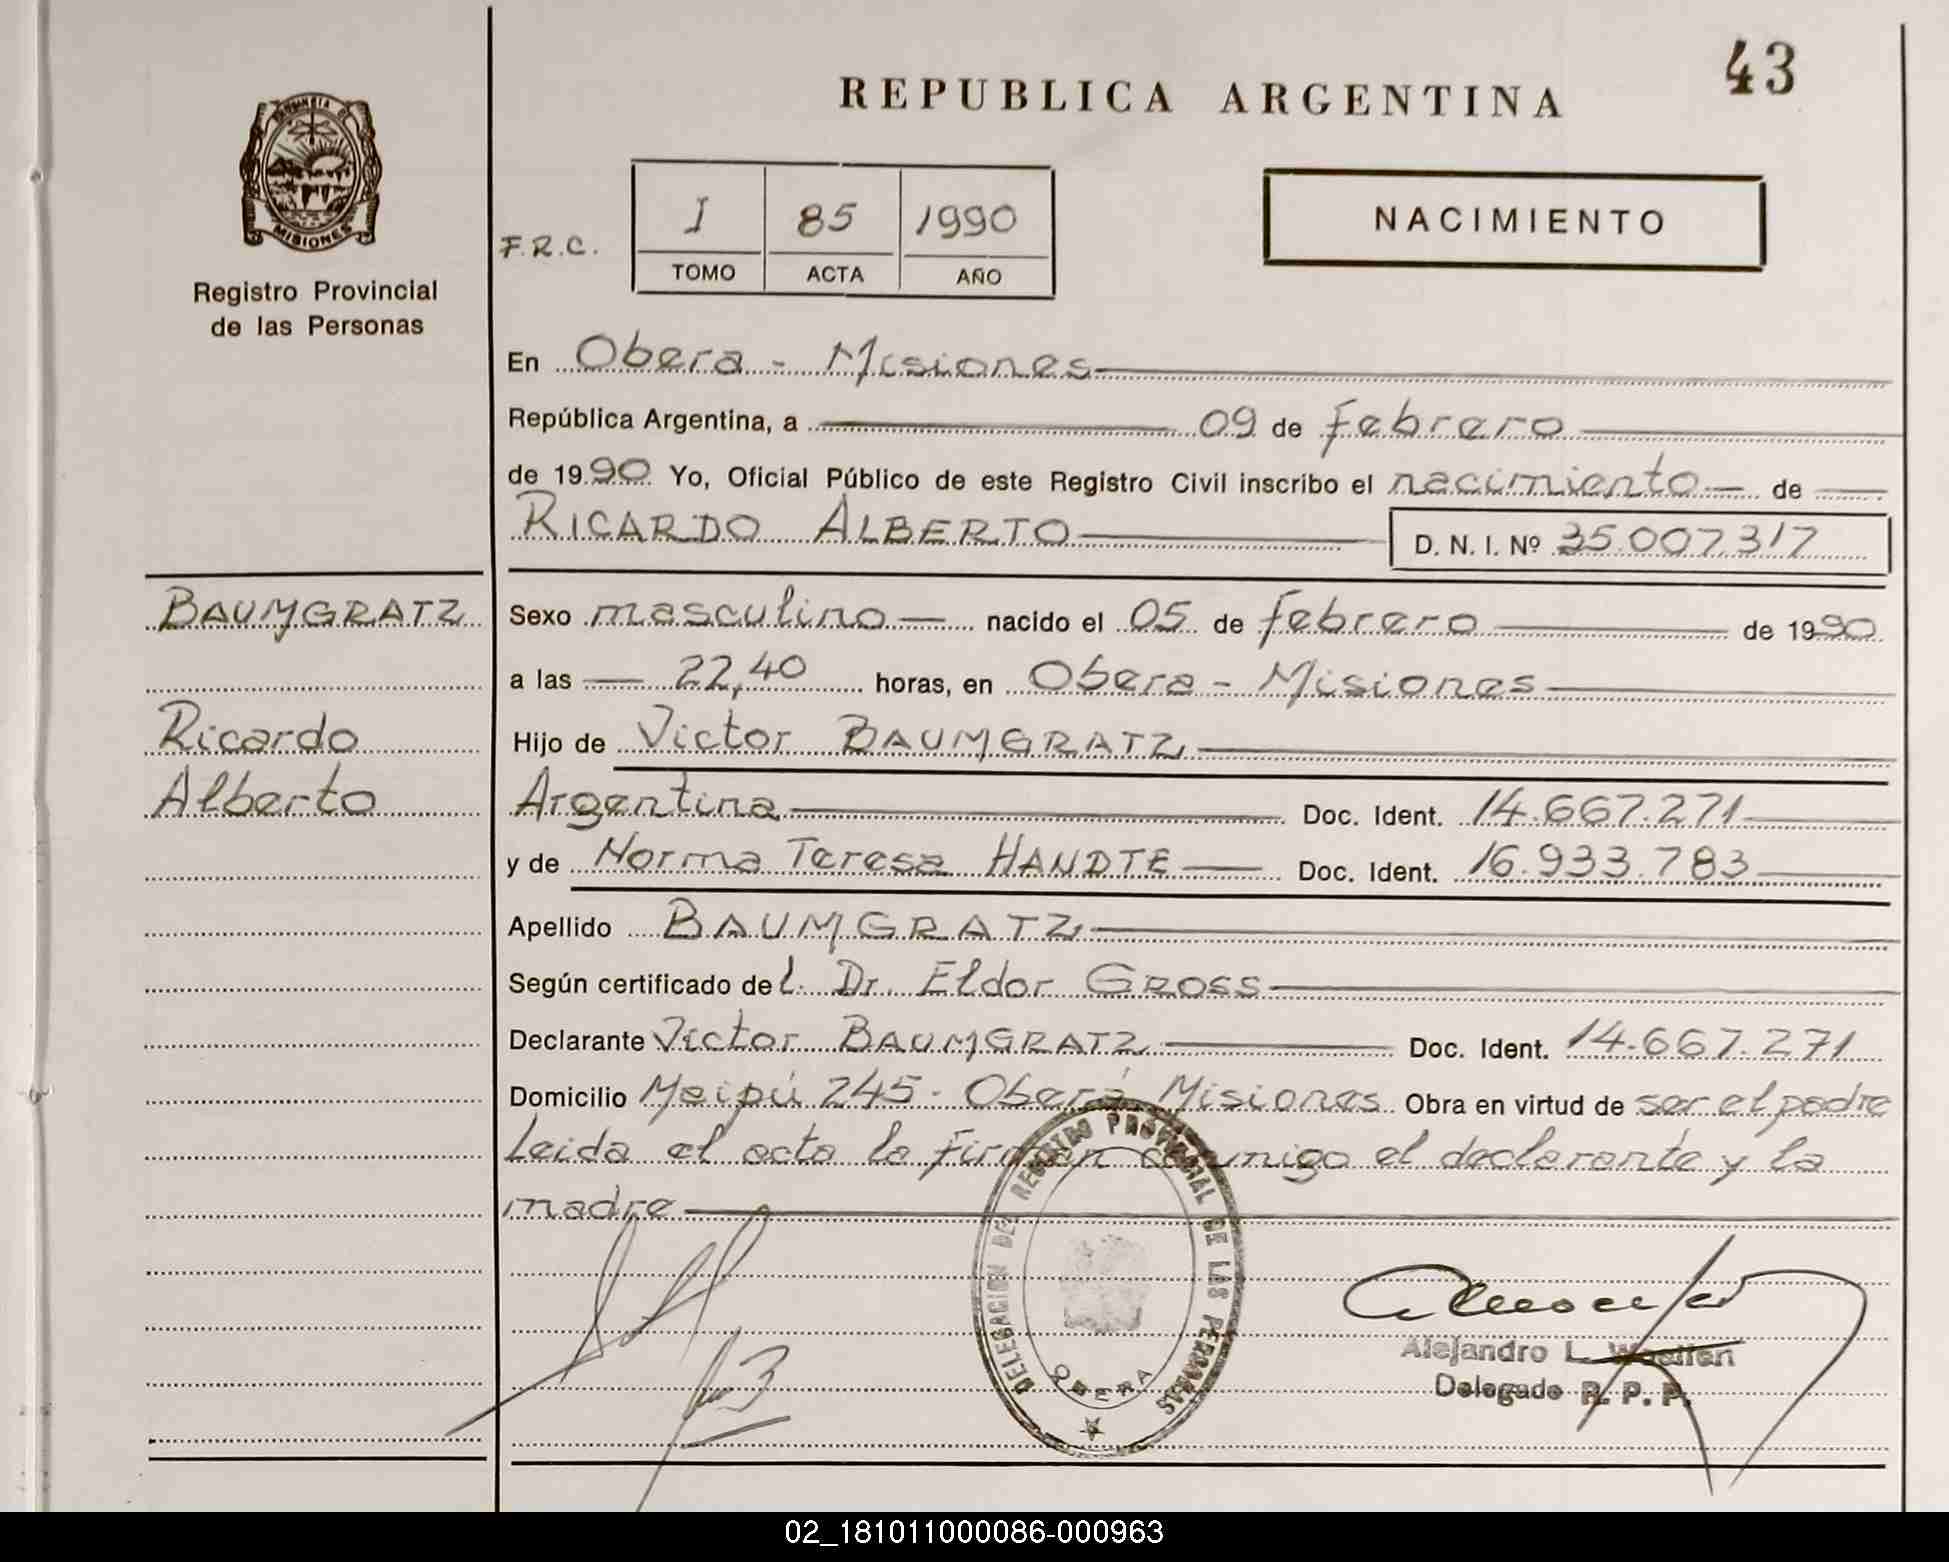 43
REPUBLICA ARGENTINA
PROVINCIA DE
MISIONES
Registro Provincial
de las Personas
F.R.C.
I 85 1990
TOMO ACTA AÑO
NACIMIENTO
En Obera - Misiones
República Argentina, a 09 de Febrero
de 1990 Yo, Oficial Público de este Registro Civil inscribo el nacimiento de
RICARDO ALBERTO D. N. I. Nº 35.007.317
BAUMGRATZ
Ricardo
Alberto
Sexo masculino nacido el 05 de febrero de 1990
a las 22,40 horas, en Obera - Misiones
Hijo de Victor BAUMGRATZ
Argentina Doc. Ident. 14.667.271
y de Norma Teresa HANDTE Doc. Ident. 16.933.783
Apellido BAUMGRATZ
Según certificado del Dr. Eldor GROSS
Declarante Victor BAUMGRATZ Doc. Ident. 14.667.271
Domicilio Maipú 245 - Oberá Misiones Obra en virtud de ser el padre
Leida el acta la firman conmigo el declarante y la
madre
DELEGACION DEL REGISTRO PROVINCIAL DE LAS PERSONAS
OBERA
Alejandro L.
Delegado R. P. P.
02_181011000086-000963